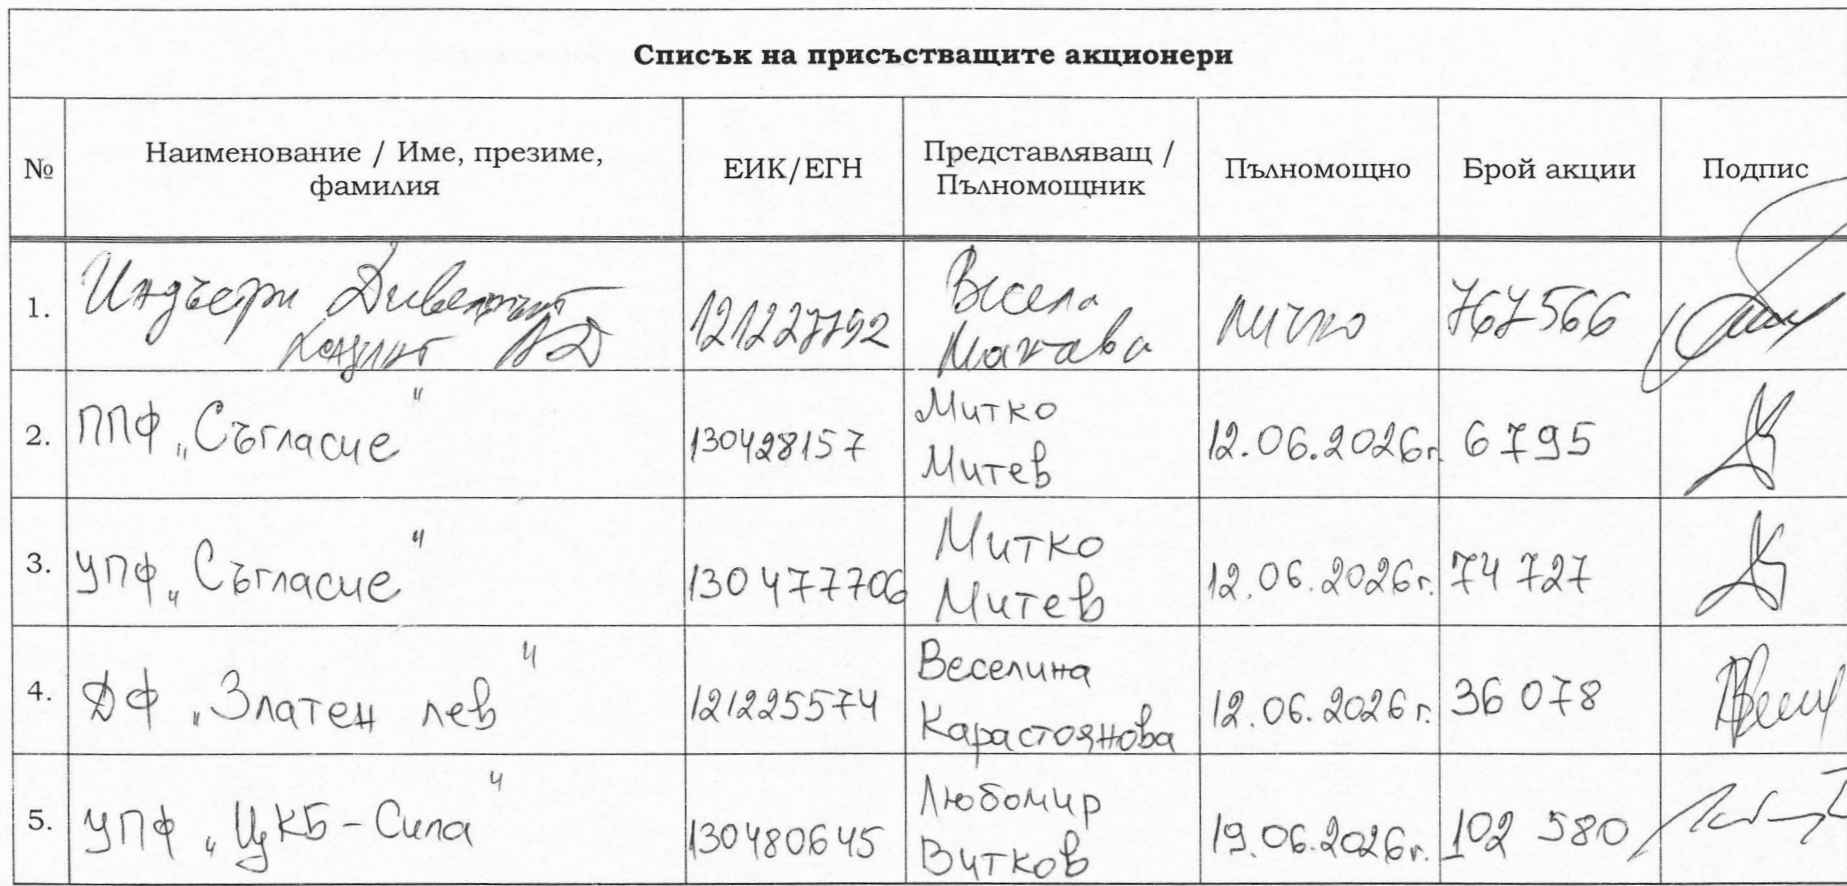 Списък на присъстващите акционери
№ Наименование / Име, презиме, фамилия ЕИК/ЕГН Представляващ / Пълномощник Пълномощно Брой акции Подпис
1. Индъстри Дивелъпмънт Холдинг АД 121227792 Весела лично 767566
2. ППФ „Съгласие" 130428157 Митко Митев 12.06.2026г. 6 795
3. УПФ „Съгласие" 130477706 Митко Митев 12.06.2026г. 74 727
4. ДФ „Златен лев" 121225574 Веселина Карастоянова 12.06.2026г. 36 078
5. УПФ „ЦКБ-Сила" 130480645 Любомир Витков 19.06.2026г. 102 580